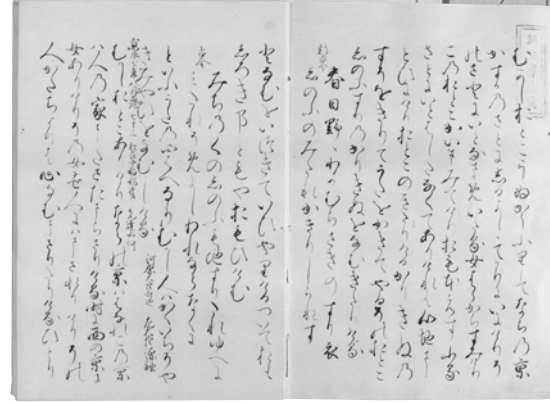 むかしおとこうゐかうふりしてならの京
かすかのさとにしるよししてかりにいにけりそ
のさとにいとなまめいたる女はらからすみけり
このおとこかいまみてけりおもほえすふる
さとにいとはしたなくてありけれは心地まと
ひにけりおとこのきたりけるかりきぬの
すそをきりてうたをかきてやるそのおとこ
しのふすりのかりきぬをなむきたりける
春日野のわかむらさきのすり衣
しのふのみたれかきりしられす
となむをいつきていひやりけるついておも
しろきことともやおもひけむ
みちのくのしのふもちすりたれゆへに
みたれそめにしわれならなくに
といふうたの心はへなりむかし人はかくいちはや
きみやひをなむしける
むかしおとこありけりならの京ははなれこの京
は人の家またさたまらさりける時に西の京に
女ありけりその女世人にはまされりけりその
人かたちよりは心なむまさりたりけるひとり